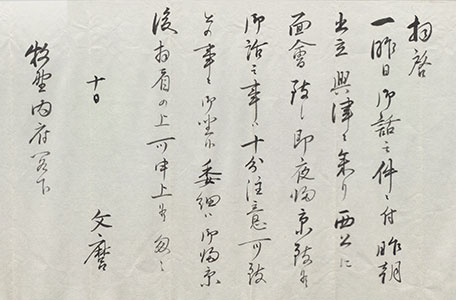 拝啓
一昨日御話之件ニ付昨朝
出立興津ニ参り西公に
面會致し即夜帰京致候
御話之事ハ十分注意可致
との事ニ御坐候委細ハ御帰京
後拝眉の上可申上候 匆々
十日
文麿
牧野内府閣下